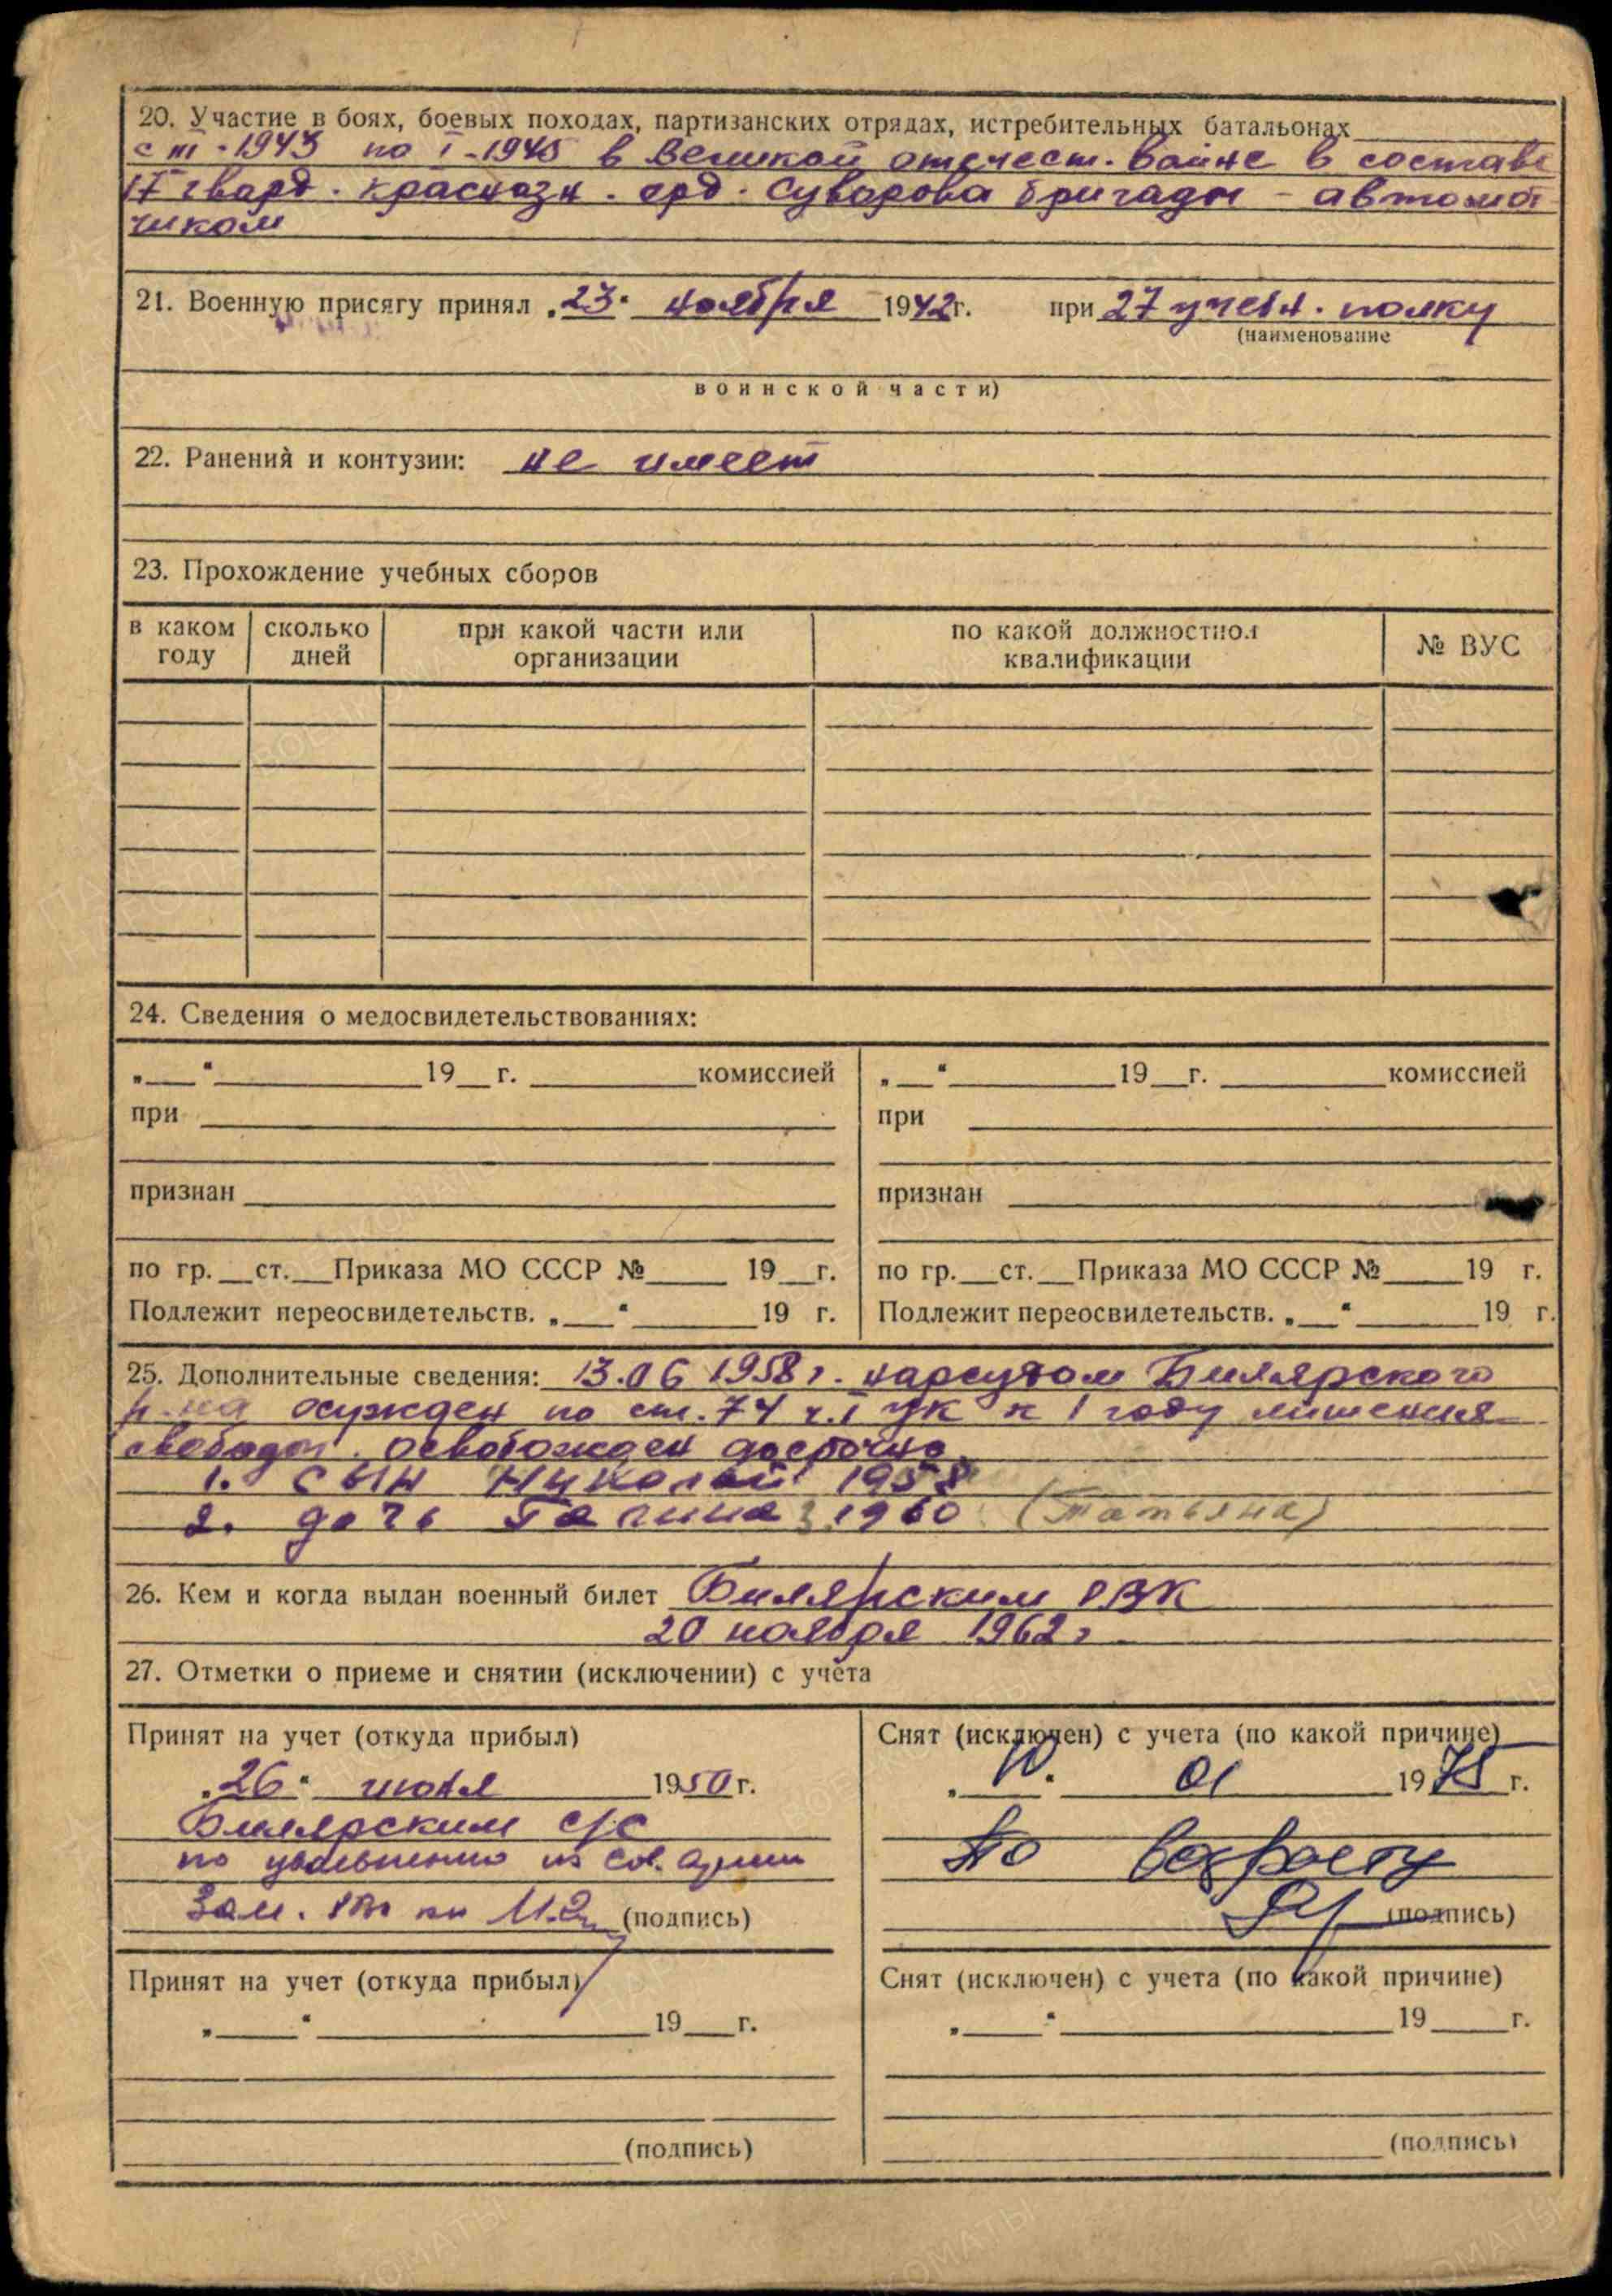 20. Участие в боях, боевых походах, партизанских отрядах, истребительных батальонах
с III-1943 по I-1945 в Великой отечест. войне в составе
гвард. краснозн. орд. Суворова бригады - автомат
чиком
21. Военную присягу принял „23“ ноября 1942г. при 27 учебн. полку
(наименование
воинской части)
22. Ранения и контузии: не имеет
23. Прохождение учебных сборов
в каком году сколько дней при какой части или организации по какой должностной квалификации № ВУС
24. Сведения о медосвидетельствованиях:
„ “ 19 г. комиссией „ “ 19 г. комиссией
при при
признан признан
по гр. ст. Приказа МО СССР № 19 г. по гр. ст. Приказа МО СССР № 19 г.
Подлежит переосвидетельств. „ “ 19 г. Подлежит переосвидетельств. „ “ 19 г.
25. Дополнительные сведения: 13.06 1958г. нарсудом Билярского
р-на осужден по ст. 74 ч.I УК к 1 году лишения
свободы. освобожден досрочно
1. сын Николай 1958
2. дочь Галина 1960 (Татьяна)
26. Кем и когда выдан военный билет Билярским РВК
20 ноября 1962г
27. Отметки о приеме и снятии (исключении) с учёта
Принят на учет (откуда прибыл) Снят (исключен) с учета (по какой причине)
„26“ июля 1950г. „10“ 01 1975 г.
Билярским с/с
по увольнению из Сов. армии По возрасту
Зам. (подпись) (подпись)
Принят на учет (откуда прибыл) Снят (исключен) с учета (по какой причине)
„ “ 19 г. „ “ 19 г.
(подпись) (подпись)